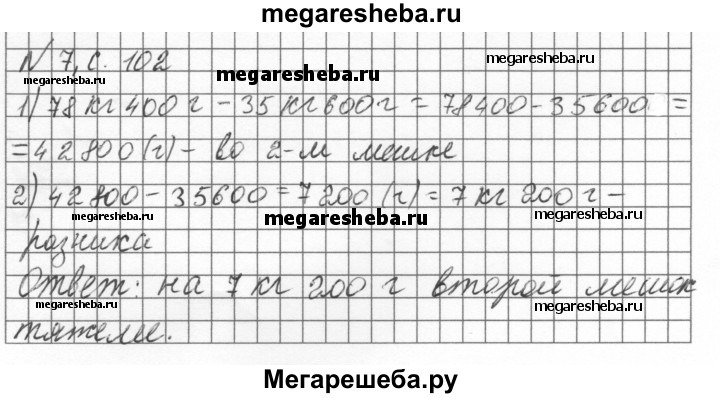 megaresheba.ru
N 7, с. 102
megaresheba.ru
megaresheba.ru
megaresheba.ru
1) 78 кг 400 г – 35 кг 600 г = 78400 – 35600 =
= 42800 (г) – во 2-м мешке
2) 42800 – 35600 = 7200 (г) = 7 кг 200 г –
megaresheba.ru
megaresheba.ru
megaresheba.ru
разница
Ответ: на 7 кг 200 г второй мешок
megaresheba.ru
megaresheba.ru
тяжелее.
Мегарешеба.ру